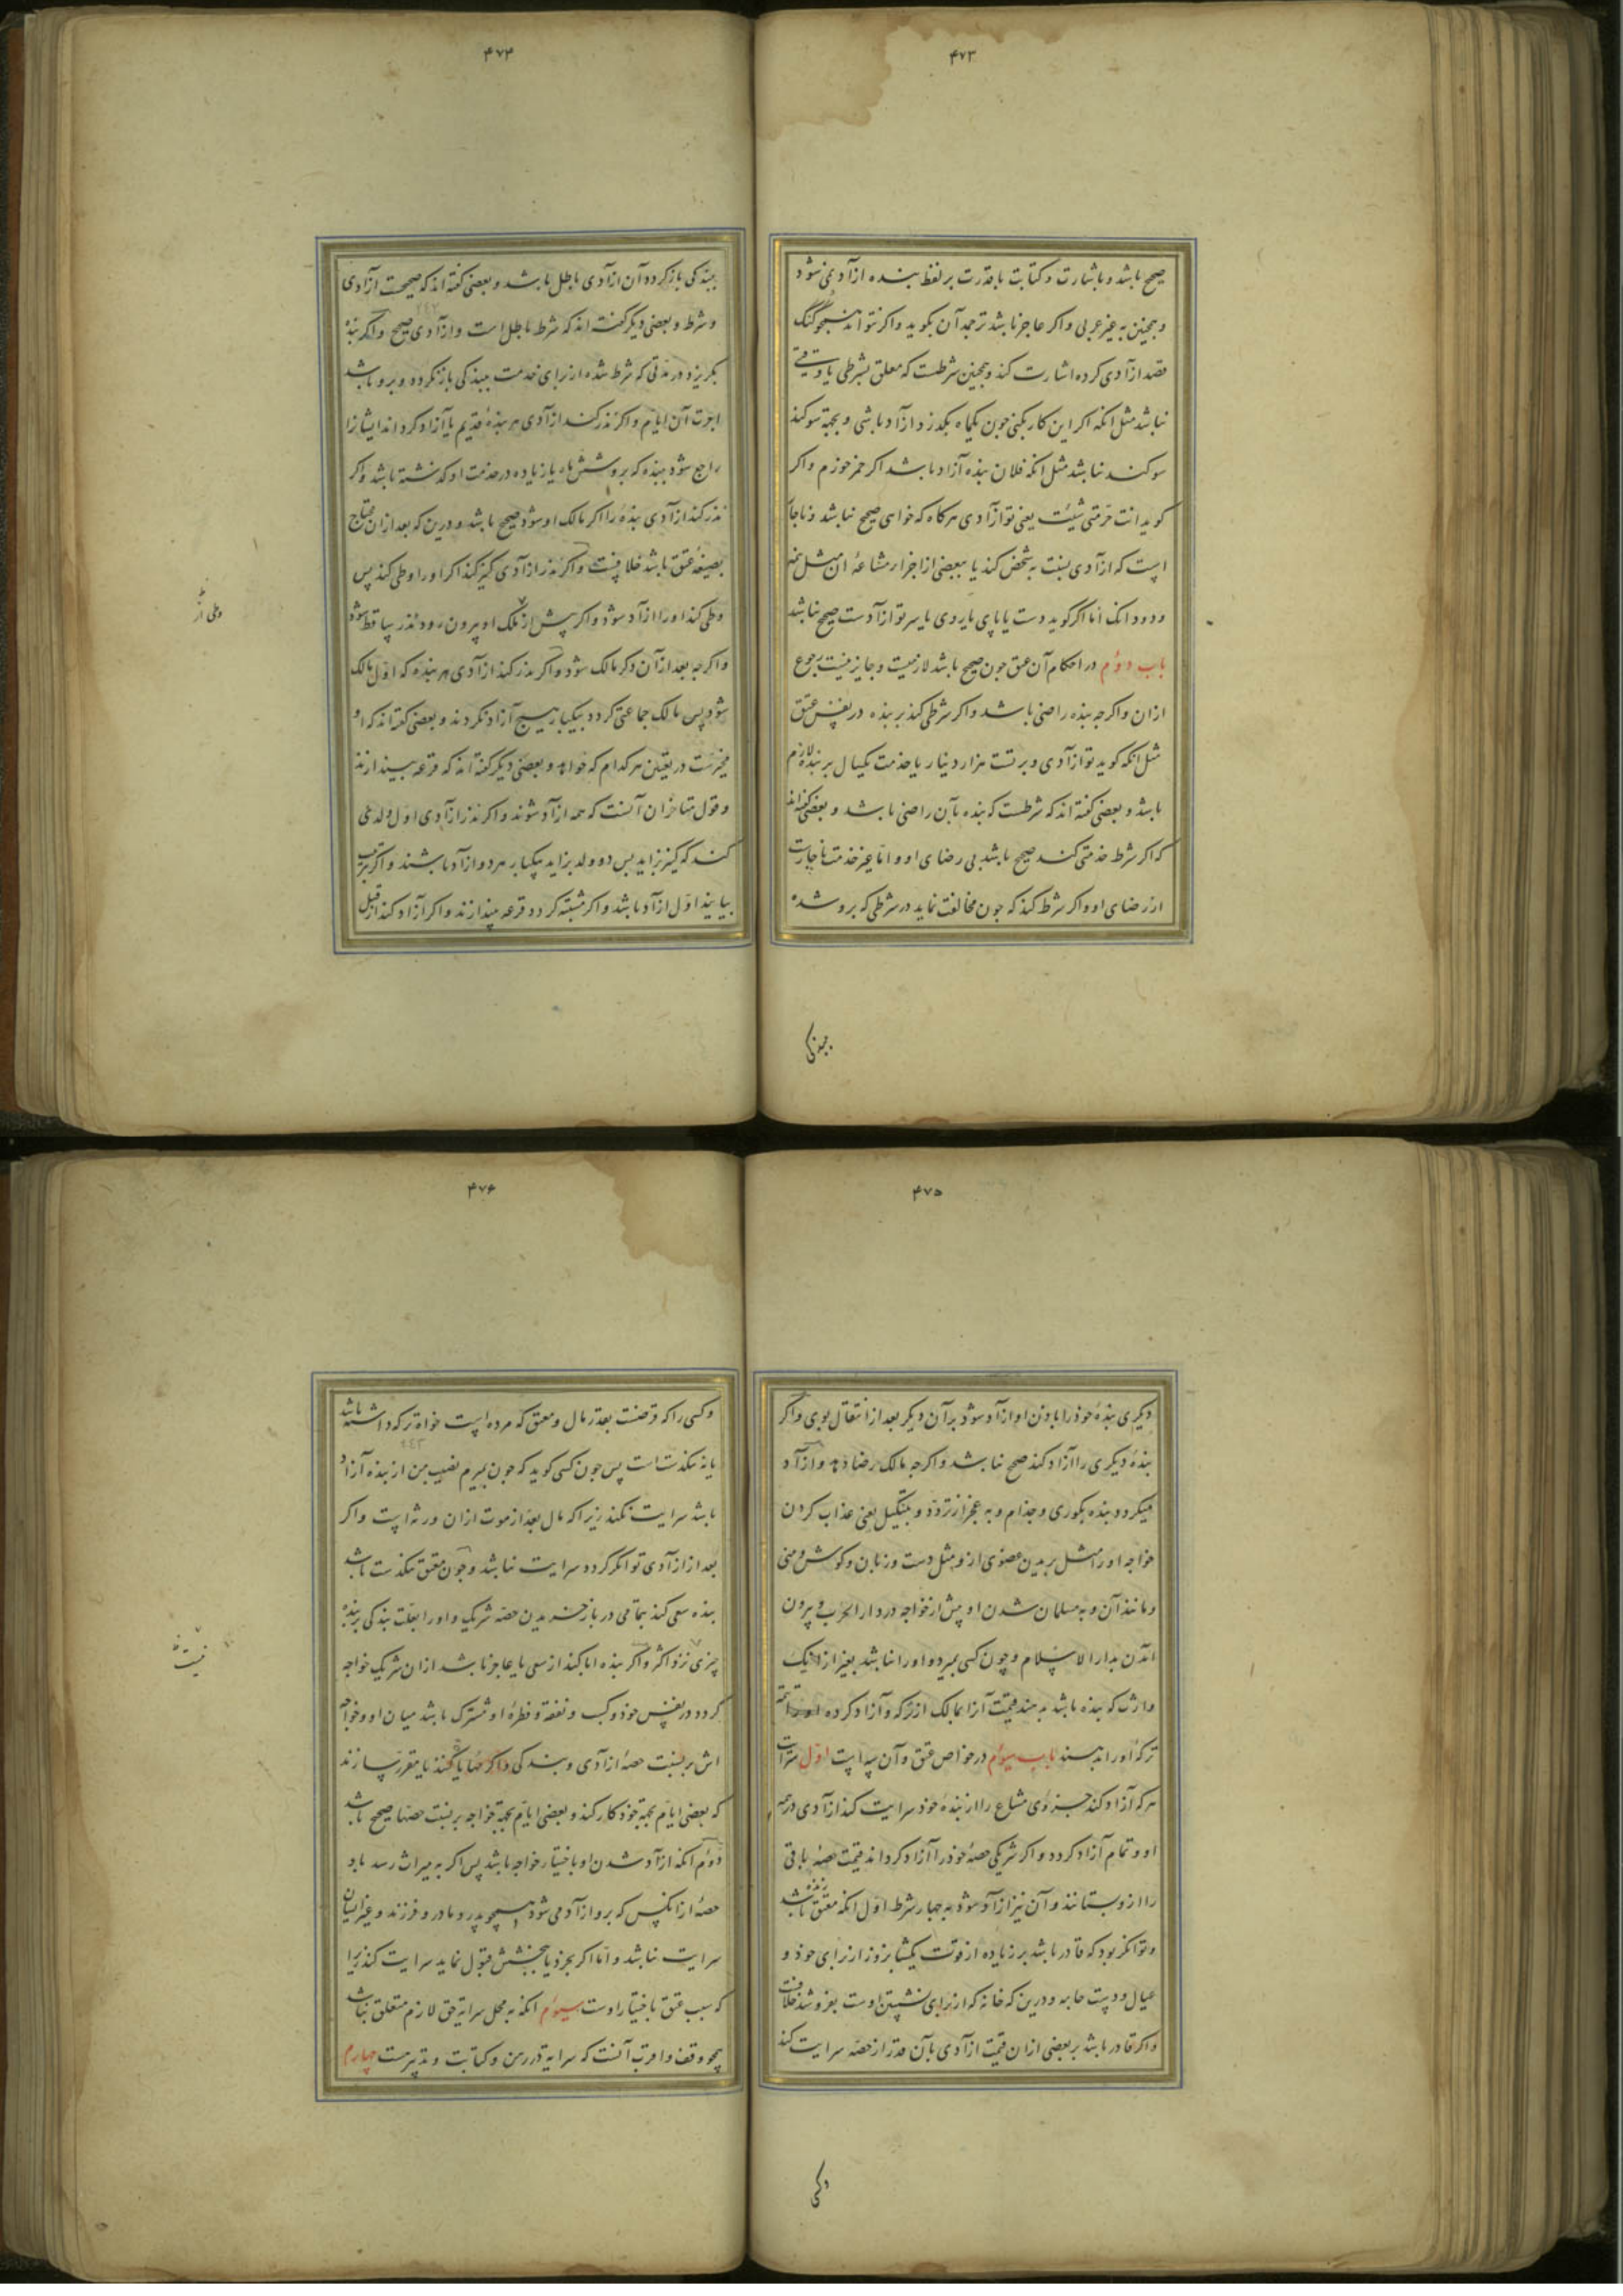 ۴۷۳
صحیح باشد و باشارت و کتابت با قدرت بر لفظ بنده ازاد نمی شود
و همچنین به غیر عربی و اکر عاجز باشد ترجمه آن بکوید و اکر نتواند همچو کنک
قصد ازادی کرده اشارت کند و همچنین شرطست که معلق بشرطی یا وقتی
نباشد مثل انکه اکر این کار بکنی چون یکماه بکذرد ازاد باشی و بجهة سوکند
سوکند نباشد مثل انکه فلان بنده آزاد باشد اکر خمر خورم و اکر
کوید انت حر متی شئت یعنی تو ازادی هرکاه که خواهی صحیح نباشد و ناچار
است که ازادی نسبت به شخص کند یا ببعضی از اجزاء مشاعهٔ ان مثل نیم
و دو دانک اما اکر کوید دست یا پای یا روی یا سر تو ازادست صحیح نباشد
باب دوم در احکام آن عتق چون صحیح باشد لازمست و جایز نیست رجوع
ازان و اکرچه بنده راضی باشد و اکر شرطی کند بر بنده در نفس عتق
مثل انکه کوید تو ازادی و بر تست هزار دینار یا خدمت یکسال بر بنده لازم
باشد و بعضی کفته اند که شرطست که بنده بآن راضی باشد و بعضی کفته اند
که اکر شرط خدمتی کند صحیح باشد بی رضای او و اما غیر خدمت ناچارست
از رضای او و اکر شرط کند که چون مخالفت نماید در شرطی که بر و شده
ببندکی
۴۷۴
ببندکی باز کردد آن ازادی باطل باشد و بعضی کفته اند که صحیحست آزادی
و شرط و بعضی دیکر کفته اند که شرط باطل است و ازادی صحیح و اکر بنده
بکریزد در مدتی که شرط شده از برای خدمت ببندکی باز نکردد و برو باشد
اجرت آن ایام و اکر نذر کند ازادی هر بندهٔ قدیم یا آزاد کرداند ایشانرا
راجع شود ببنده که برو شش ماه یا زیاده در خدمت او کذشته باشد و اکر
نذر کند ازادی بندهٔ را اکر مالک او شود صحیح باشد و درین که بعد ازان محتاج
بصیغهٔ عتق باشد خلافست و اکر نذر ازادی کنیز کند اکر او را وطی کند پس
وطی کند او را ازاد شود و اکر پیش از ملک او بیرون رود نذر ساقط شود
وطی از
و اکرچه بعد از آن دکر مالک شود و اکر نذر کند ازادی هر بنده که اول مالک
شود پس مالک جماعتی کردد بیکبار هیچ آزاد نکردند و بعضی کفته اند که او
مخیرست در تعیین هر کدام که خواهد و بعضی دیکر کفته اند که قرعه بیندازند
و قول متاخران آنست که همه ازاد شوند و اکر نذر ازادی اول ولدی
کند که کنیز بزاید پس دو ولد بزاید بیکبار هر دو ازاد باشند و اکر بترتیب
بیایند اول ازاد باشد و اکر مشتبه کردد قرعه بیندازند و اکر آزاد کند از قبل
۴۷۵
دیکری بندهٔ خود را باذن او ازاد شود بر آن دیکر بعد از انتقال بوی و اکر
بندهٔ دیکری را آزاد کند صحیح نباشد و اکرچه مالک رضا دهد و ازاد
میکردد بنده بکوری و جذام و به عجز از تردد و بتنکیل یعنی عذاب کردن
خواجه او را مثل بریدن عضوی ازو مثل دست و زبان و کوش و بینی
و مانند آن و به مسلمان شدن او پیش از خواجه در دار الحرب و بیرون
آمدن بدار الاسلام و چون کسی بمیرد و او را نباشد بغیر از انک
وارث که بنده باشد بدهند قیمت آنرا بمالک از ترکه و آزاد کرده تتمهٔ
ترکه او را دهند باب سوم در خواص عتق و آن سه است اول سرایت
هرکه آزاد کند جزوی مشاع را از بندهٔ خود سرایت کند ازادی در همه
او و تمام آزاد کردد و اکر شریکی حصهٔ خود را آزاد کرداند قیمت حصهٔ باقی
را ازو بستانند و آن نیز ازاد شود به چهار شرط اول انکه معتق زنده باشد
و توانکر بود که قادر باشد بر زیاده از قوت یکشبانروز از برای خود و
عیال و دست جامه و درین که خانه که از برای نشستن اوست بفروشند خلافست
و اکر قادر باشد بر بعضی ازان قیمت ازادی بآن قدر از حصه سرایت کند
و کسی
۴۷۶
و کسی را که قرضست بقدر مال و معتق که مرده است خواه ترکه داشته باشد
یا نه تنکدست است پس چون کسی کوید که چون بمیرم نصیب من از بنده آزاد
باشد سرایت نکند زیرا که مال بعد از موت ازان ورثه است و اکر
بعد از ازادی توانکر کردد سرایت نباشد و چون معتق تنکدست باشد
بنده سعی کند بتمامی در باز خریدن حصه شریک و او را بعلت بندکی بر بنده
چیزی نزد اکثر و اکر بنده ابا کند از سعی یا عاجز باشد ازان شریک خواجه
نیست
کردد در نفس خود و کسب و نفقه و فطرهٔ او مشترک باشد میان او و خواجه
اش بر نسبت حصهٔ ازادی و بندکی و اکر مهایا کنند یا مقرر سازند
که بعضی ایام بجهة خود کار کند و بعضی ایام بجهة خواجه بر نسبت حصها صحیح باشد
دوم انکه ازاد شدن او باختیار خواجه باشد پس اکر به میراث رسد باو
حصهٔ از انکس که برو ازاد می شود همچو پدر و مادر و فرزند و غیر ایشان
سرایت نباشد و اما اکر بخرد یا بخشش قبول نماید سرایت کند زیرا
که سبب عتق باختیار اوست سوم انکه به محل سرایه حق لازم متعلق نباشد
همچو وقف و اقرب آنست که سرایه در رهن و کتابت و تدبیرست چهارم